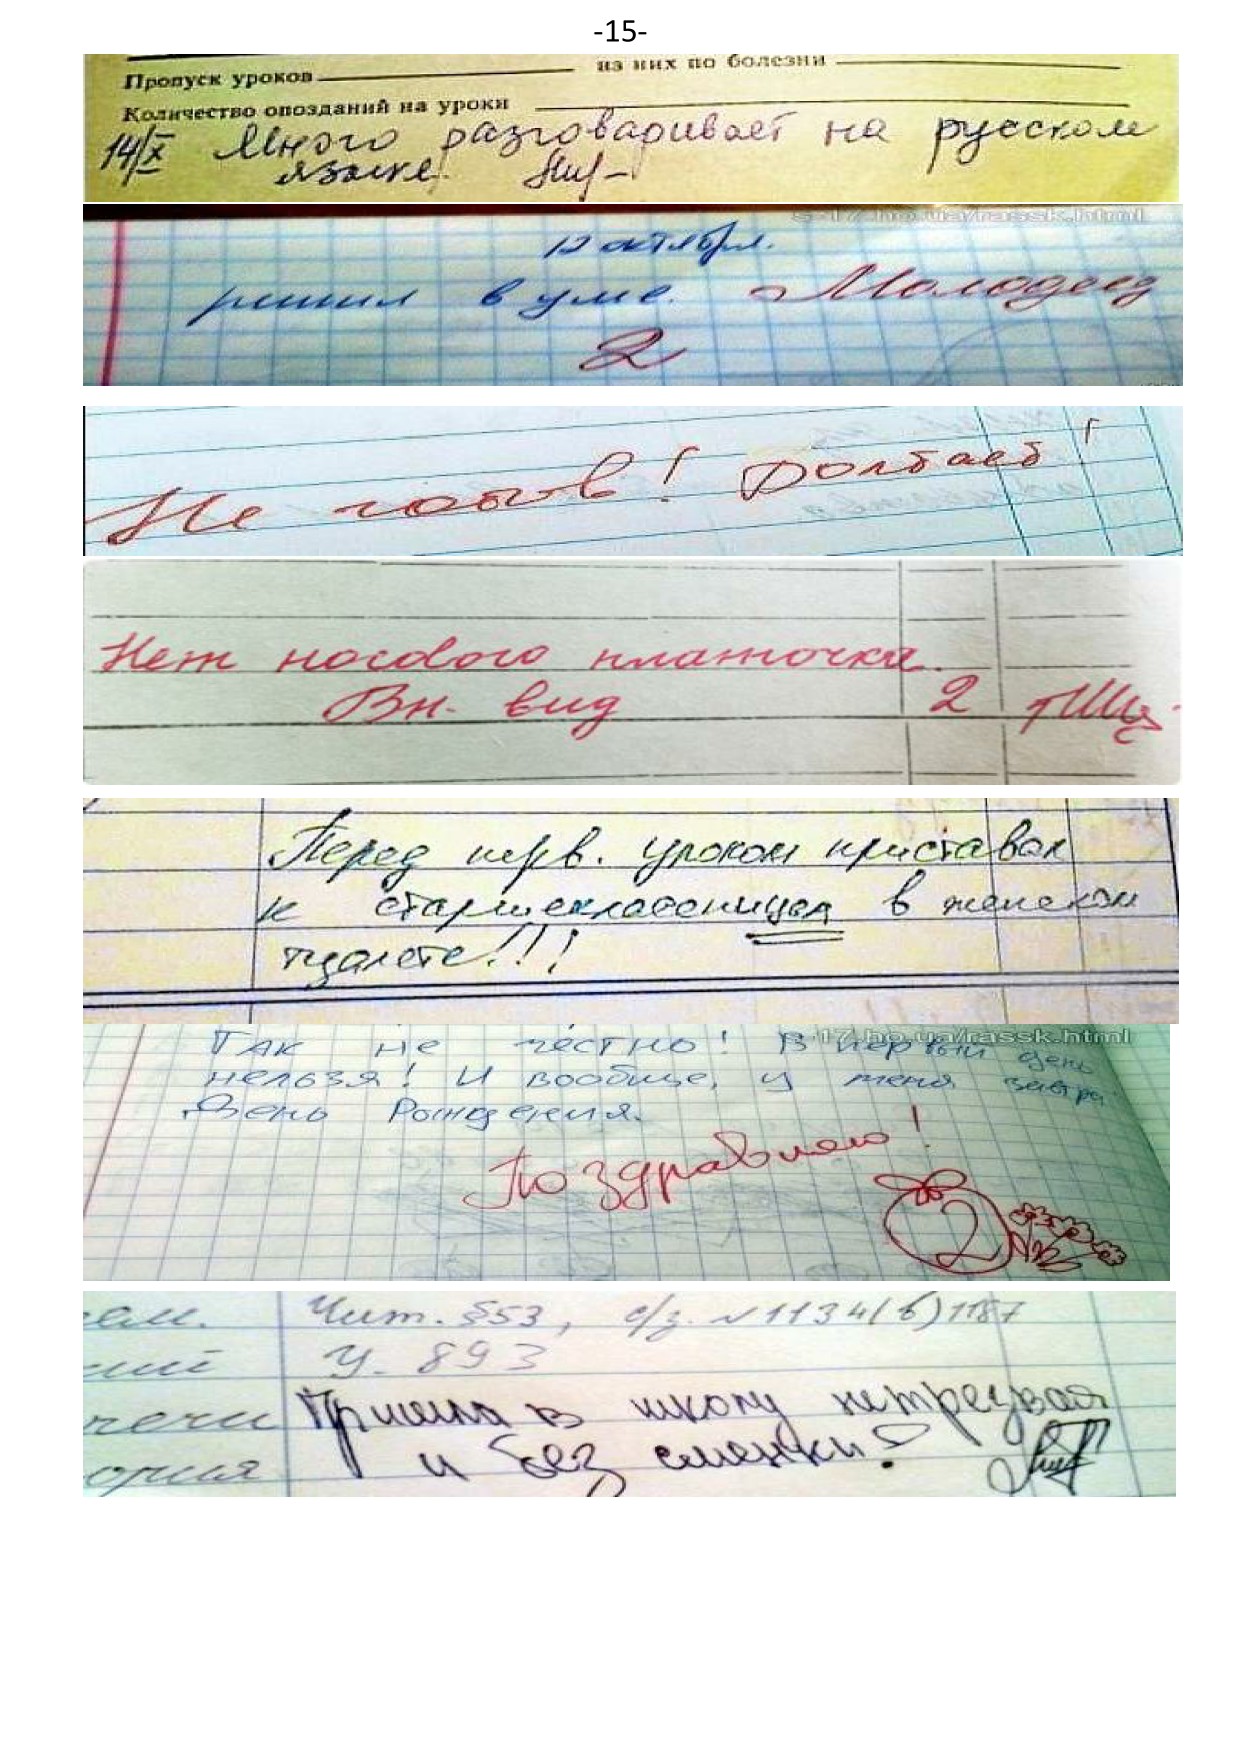 -15-
Пропуск уроков из них по болезни
Количество опозданий на уроки
14/X Много разговаривает на русском
языке.
s-17.ho.ua/rassk.html
12 октября.
решил в уме. Молодец
2
Не готов! Долбаеб!
Нет носового платочка.
Вн. вид 2
Перед перв. уроком приставал
к старшеклассницам в женском
туалете!!!
-17.ho.ua/rassk.html
Так не честно! В первый день
нельзя! И вообще, у меня завтра
День Рождения.
Поздравляю!
2
Чит. §53, с/з. №1134(б) 1187
У. 893
Пришла в школу нетрезвая
и без сменки?